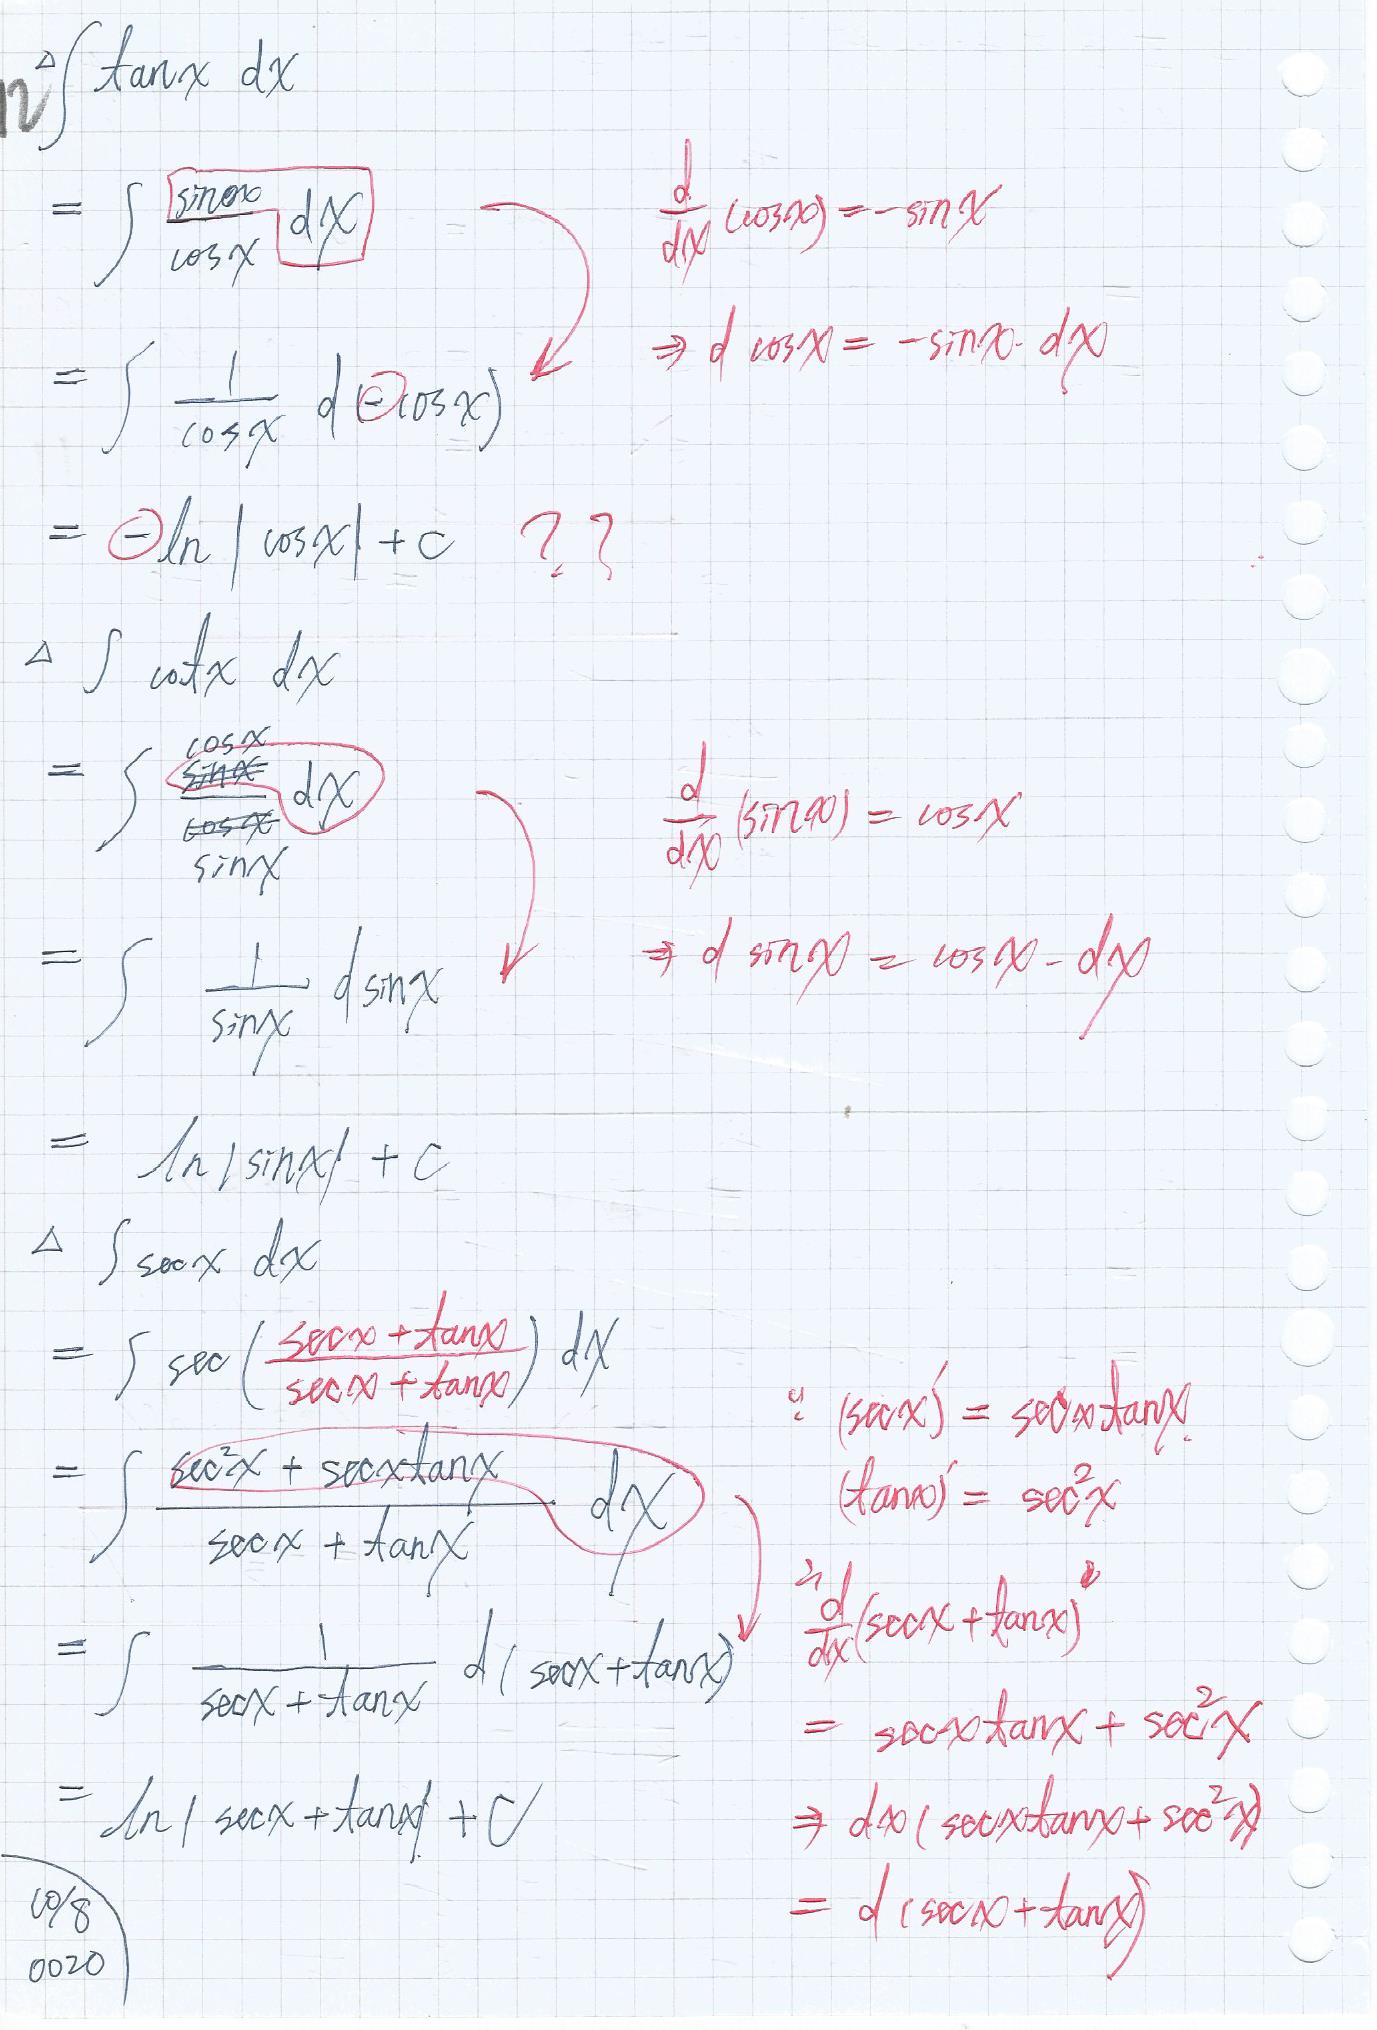 △ ∫ tanx dx
= ∫ sinx/cosx dx
d/dx (cosx) = -sinx
⇒ d cosx = -sinx · dx
= ∫ 1/cosx d(-cosx)
= -ln|cosx| + c ??
△ ∫ cotx dx
= ∫ cosx/sinx dx
d/dx (sinx) = cosx
⇒ d sinx = cosx · dx
= ∫ 1/sinx dsinx
= ln|sinx| + c
△ ∫ secx dx
= ∫ sec (secx+tanx/secx+tanx) dx
= ∫ sec²x + secxtanx/secx + tanx dx
= ∫ 1/secx+tanx d(secx+tanx)
= ln|secx+tanx| + C
∵ (secx)' = secxtanx
(tanx)' = sec²x
d/dx (secx+tanx)
= secxtanx + sec²x
⇒ dx(secxtanx+sec²x)
= d(secx+tanx)
10/8
0020